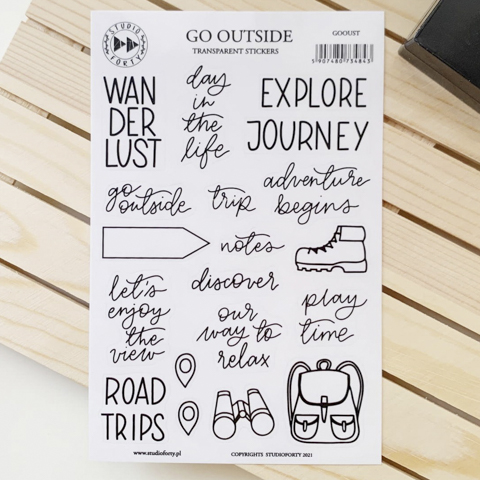 STUDIO
FORTY
GO OUTSIDE
TRANSPARENT STICKERS
GOOUST
5 907480 734843
WAN
DER
LUST
day
in
the
life
EXPLORE
JOURNEY
go
outside
trip
adventure
begins
notes
let's
enjoy
the
view
discover
our
way to
relax
play
time
ROAD
TRIPS
www.studioforty.pl
COPYRIGHTS STUDIOFORTY 2021